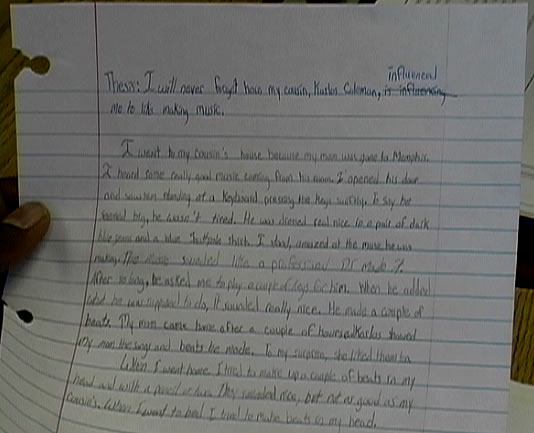 influenced
Thesis: I will never forget how my cousin, Karlos Coleman, is influencing
me to like making music.
I went to my cousin's house because my mom was gone to Memphis.
I heard some really good music coming from his room. I opened his door
and saw him standing at a Keyboard pressing the keys swiftly. To say he
looked big, he wasn't tired. He was dressed real nice in a pair of dark
blue jeans and a blue shirt. I stood, amazed at the music he was
making. The music sounded like a professional DJ made it.
After so long, he asked me to play a couple of keys for him. When he added
what he was supposed to do, it sounded really nice. He made a couple of
beats. My mom came home after a couple of hours Karlos showed
my mom the songs and beats he made. To my surprise, she liked them too
When I went home I tried to make up a couple of beats in my
head and with a pencil They sounded nice, but not as good as my
cousin's. When I went to bed I tried to make beats in my head.